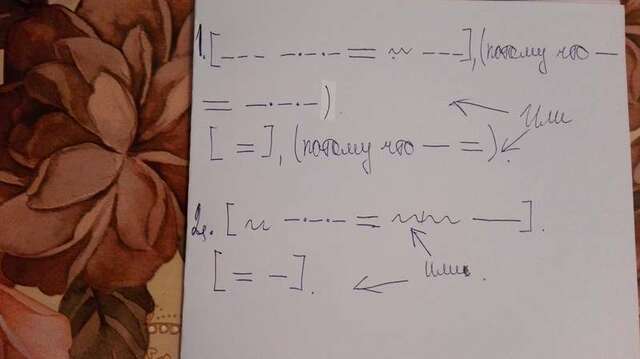 1. [--- —·—·— = ~ ---], (потому что —
= —·—·—)
Или
[ = ], (потому что — =).
2. [~ —·—·— = ~~~ —].
или.
[= —].